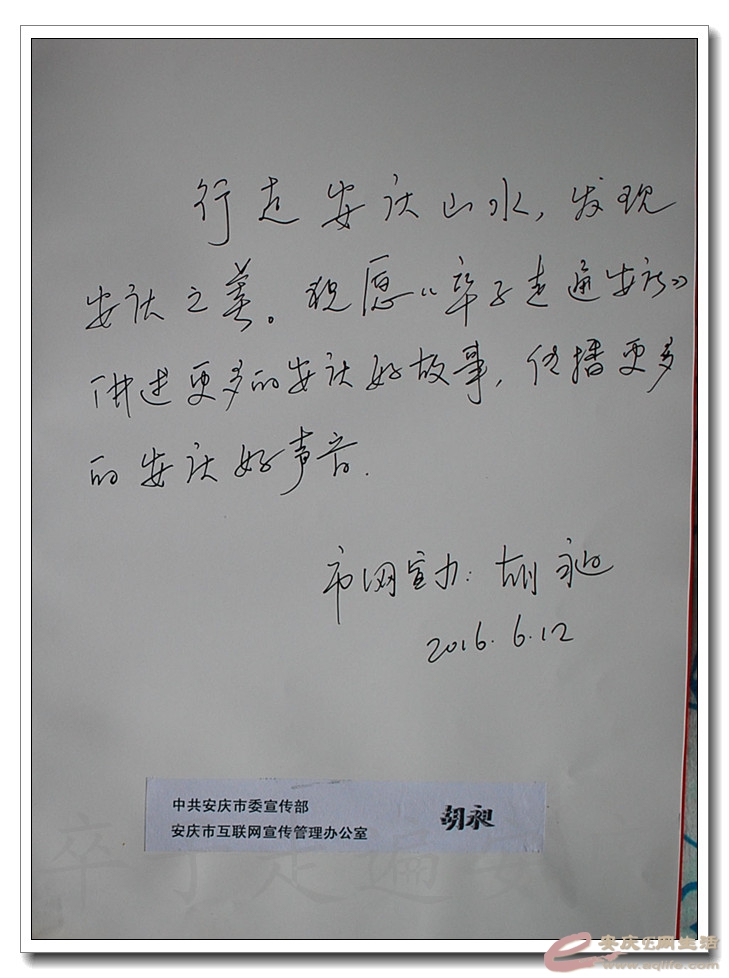 行走安庆山水,发现
安庆之美。祝愿《卒子走遍安庆》
讲述更多的安庆好故事,传播更多
的安庆好声音.
市网宣办:胡昶
2016.6.12
中共安庆市委宣传部
安庆市互联网宣传管理办公室 胡昶
卒子走遍安庆
安庆E网生活
www.aqlife.com